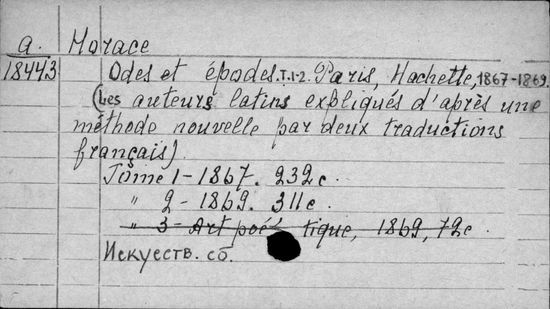 a. Horace
18443
Odes et épodes. T.1-2. Paris, Hachette, 1867-1869.
(Les auteurs latins expliqués d'après une
méthode nouvelle par deux traductions
français).
Tome 1 - 1867. 232 c.
" 2 - 1869. 311 c.
" 3 - Art poétique, 1869, 72 c.
Искусств. сб.